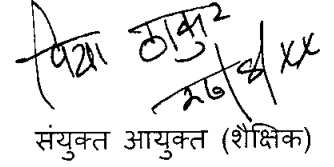 पिया ठाकुर
२७/४/××
संयुक्त आयुक्त (शैक्षिक)